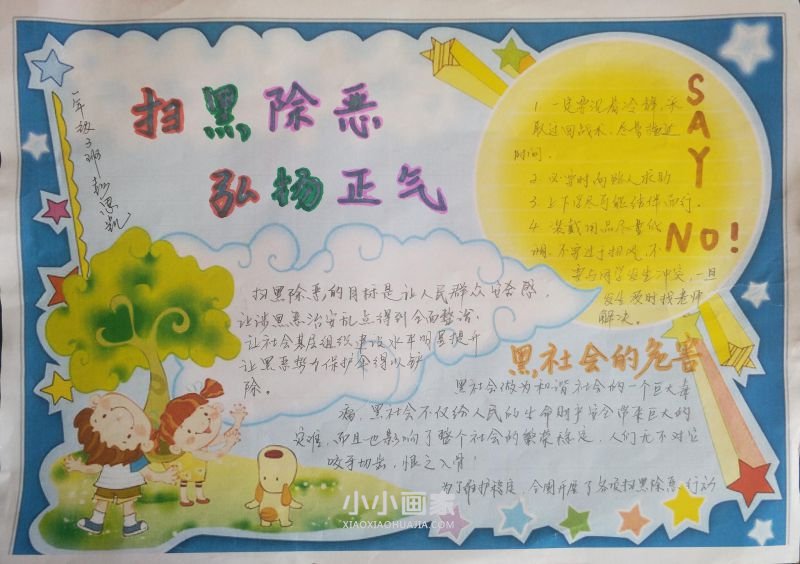 扫黑除恶
弘扬正气
一年级3班
SAY
NO!
1. 一定要沉着冷静，采
取迂回战术，尽量拖延
时间。
2. 必要时向路人求助
3. 上下学尽可能结伴而行。
4. 装戴用品尽量低
调，不要过于招摇，不
要与同学发生冲突，一旦
发生及时找老师
解决。
扫黑除恶的目标是让人民群众安全感，
让涉黑恶治安乱点得到全面整治，
让社会基层组织建设水平明显提升
让黑恶势力保护伞得以铲
除。
黑社会的危害
黑社会做为和谐社会的一个巨大毒
瘤，黑社会不仅给人民的生命财产安全带来巨大的
灾难，而且也影响了整个社会的繁荣稳定，人们无不对它
咬牙切齿，恨之入骨！
为了维护稳定，全国开展了各项扫黑除恶行动
小小画家
XIAOXIAOHUAJIA.COM